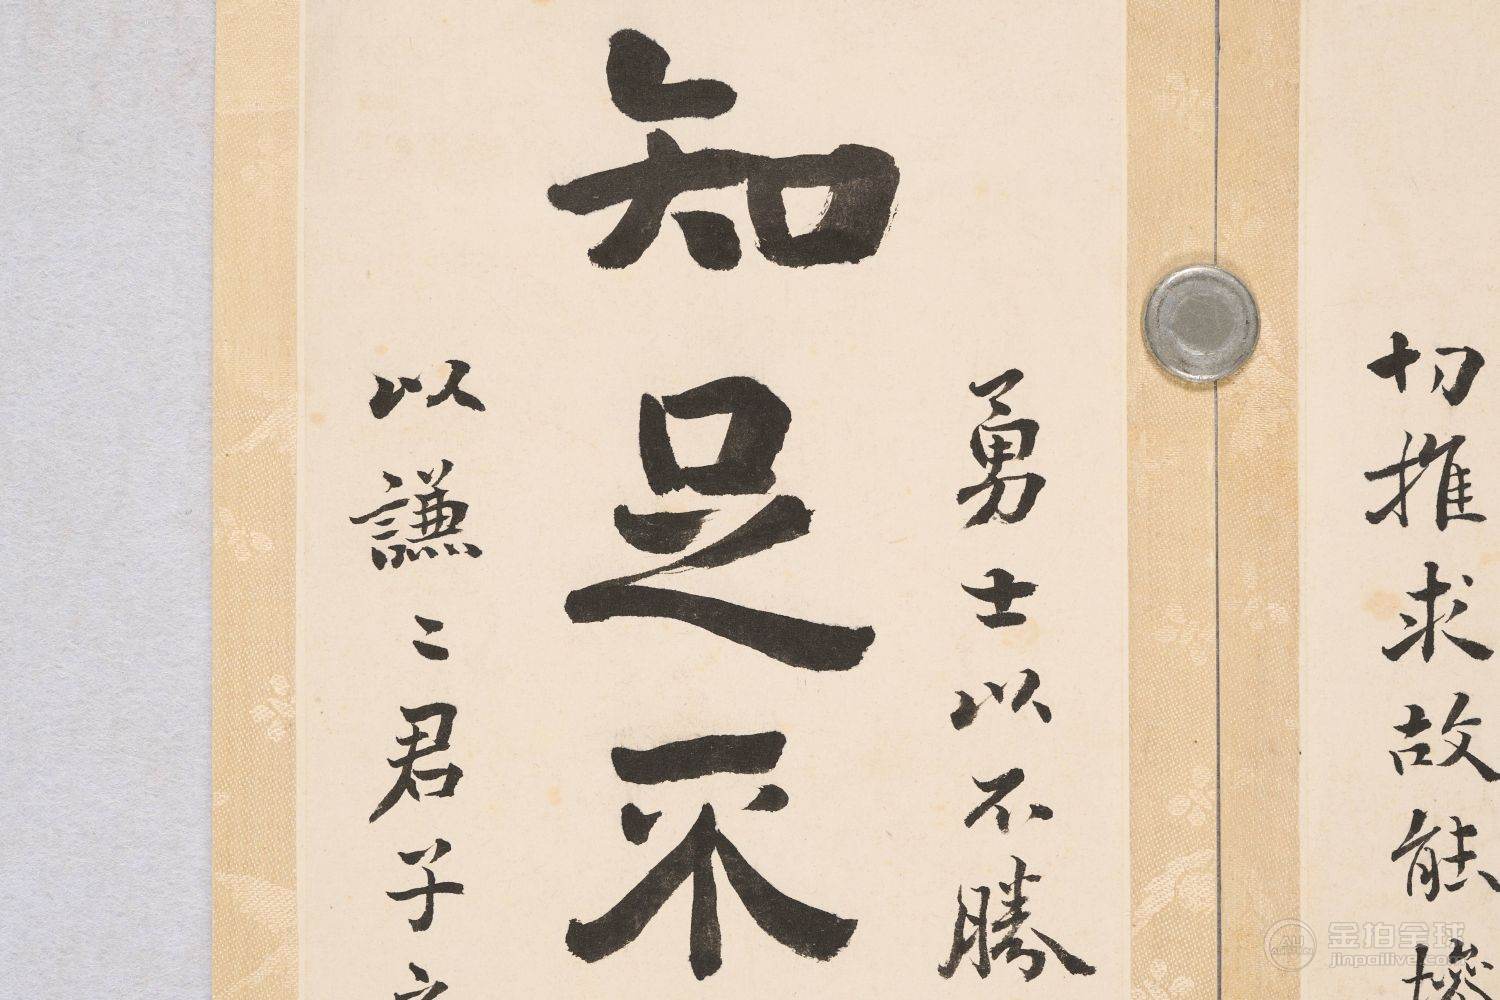 切推求故能
勇士以不勝
知足不
以謙〻君子
金拍全球
jinpailive.com